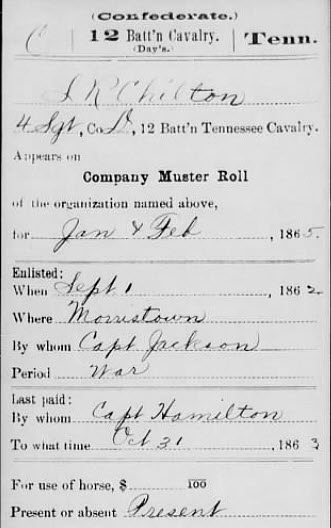 (Confederate.)
C | 12 Batt'n Cavalry. (Day's.) | Tenn.
R Chilton
4 Sgt, Co. D, 12 Batt'n Tennessee Cavalry.
Appears on
Company Muster Roll
of the organization named above,
for Jan & Feb, 1865.
Enlisted:
When Sept 1, 1862.
Where Morristown
By whom Capt Jackson
Period War
Last paid:
By whom Capt Hamilton
To what time Oct 31, 1863
For use of horse, $ 100
Present or absent Present